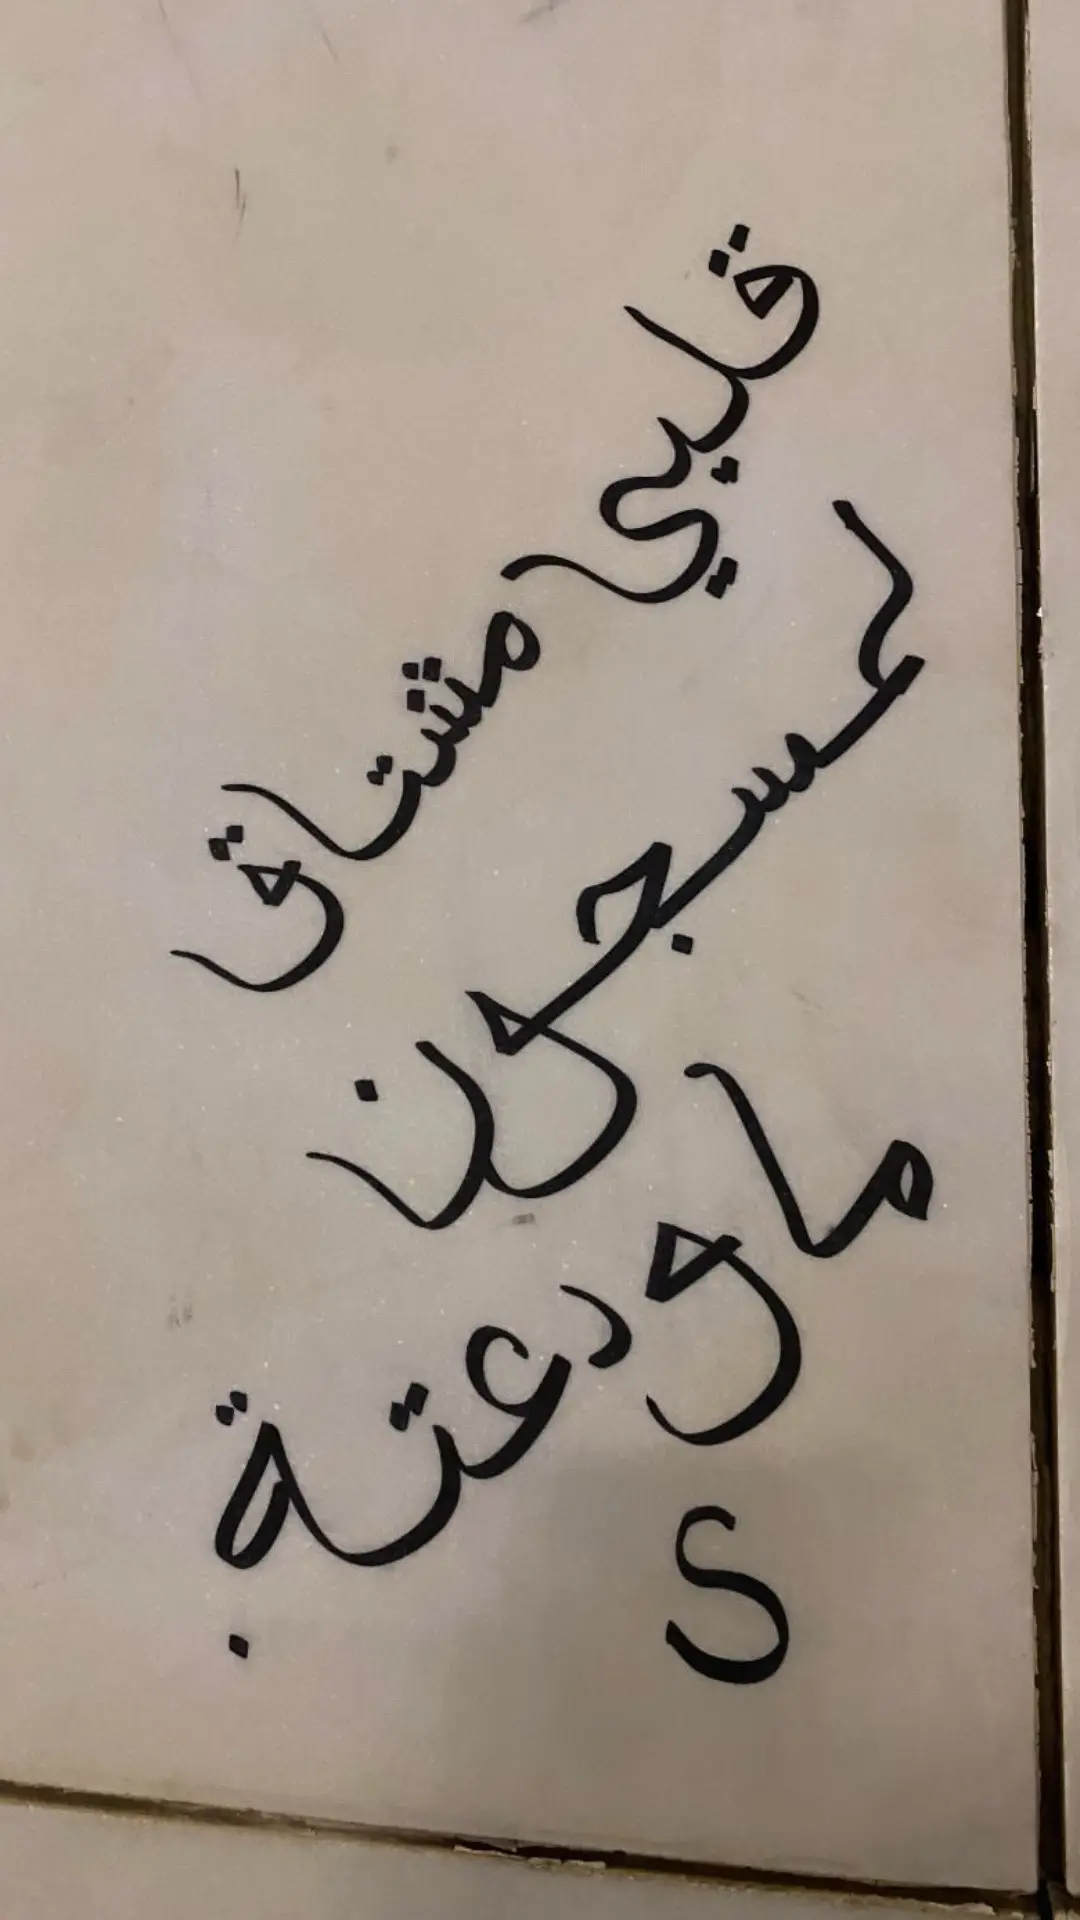 قلبي مشتاق
لمسجون
ما ودعتة .
S